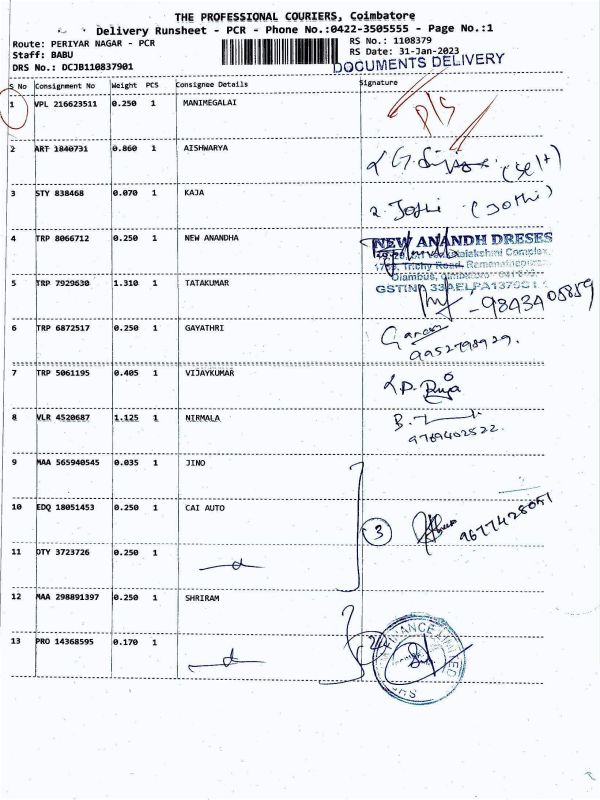 THE PROFESSIONAL COURIERS, Coimbatore
Delivery Runsheet - PCR - Phone No.:0422-3505555 - Page No.:1
Route: PERIYAR NAGAR - PCR RS No.: 1108379
Staff: BABU RS Date: 31-Jan-2023
DRS No.: DCJB110837901 DOCUMENTS DELIVERY
S No Consignment No Weight PCS Consignee Details Signature
1 VPL 216623511 0.250 1 MANIMEGALAI P/S
2 ART 1840731 0.860 1 AISHWARYA (Self)
3 STY 838468 0.070 1 KAJA Jothi (Jothi)
4 TRP 8066712 0.250 1 NEW ANANDHA NEW ANANDH DRESES
Trichy Road,
5 TRP 7929630 1.310 1 TATAKUMAR GSTIN
- 9843405859
6 TRP 6872517 0.250 1 GAYATHRI
9952798929.
7 TRP 5061195 0.405 1 VIJAYKUMAR
8 VLR 4520687 1.125 1 NIRMALA
9789402522.
9 MAA 565940545 0.035 1 JINO
10 EDQ 18051453 0.250 1 CAI AUTO 3 9677428051
11 OTY 3723726 0.250 1
12 MAA 298891397 0.250 1 SHRIRAM
13 PRO 14368595 0.170 1 FINANCE LIMITED